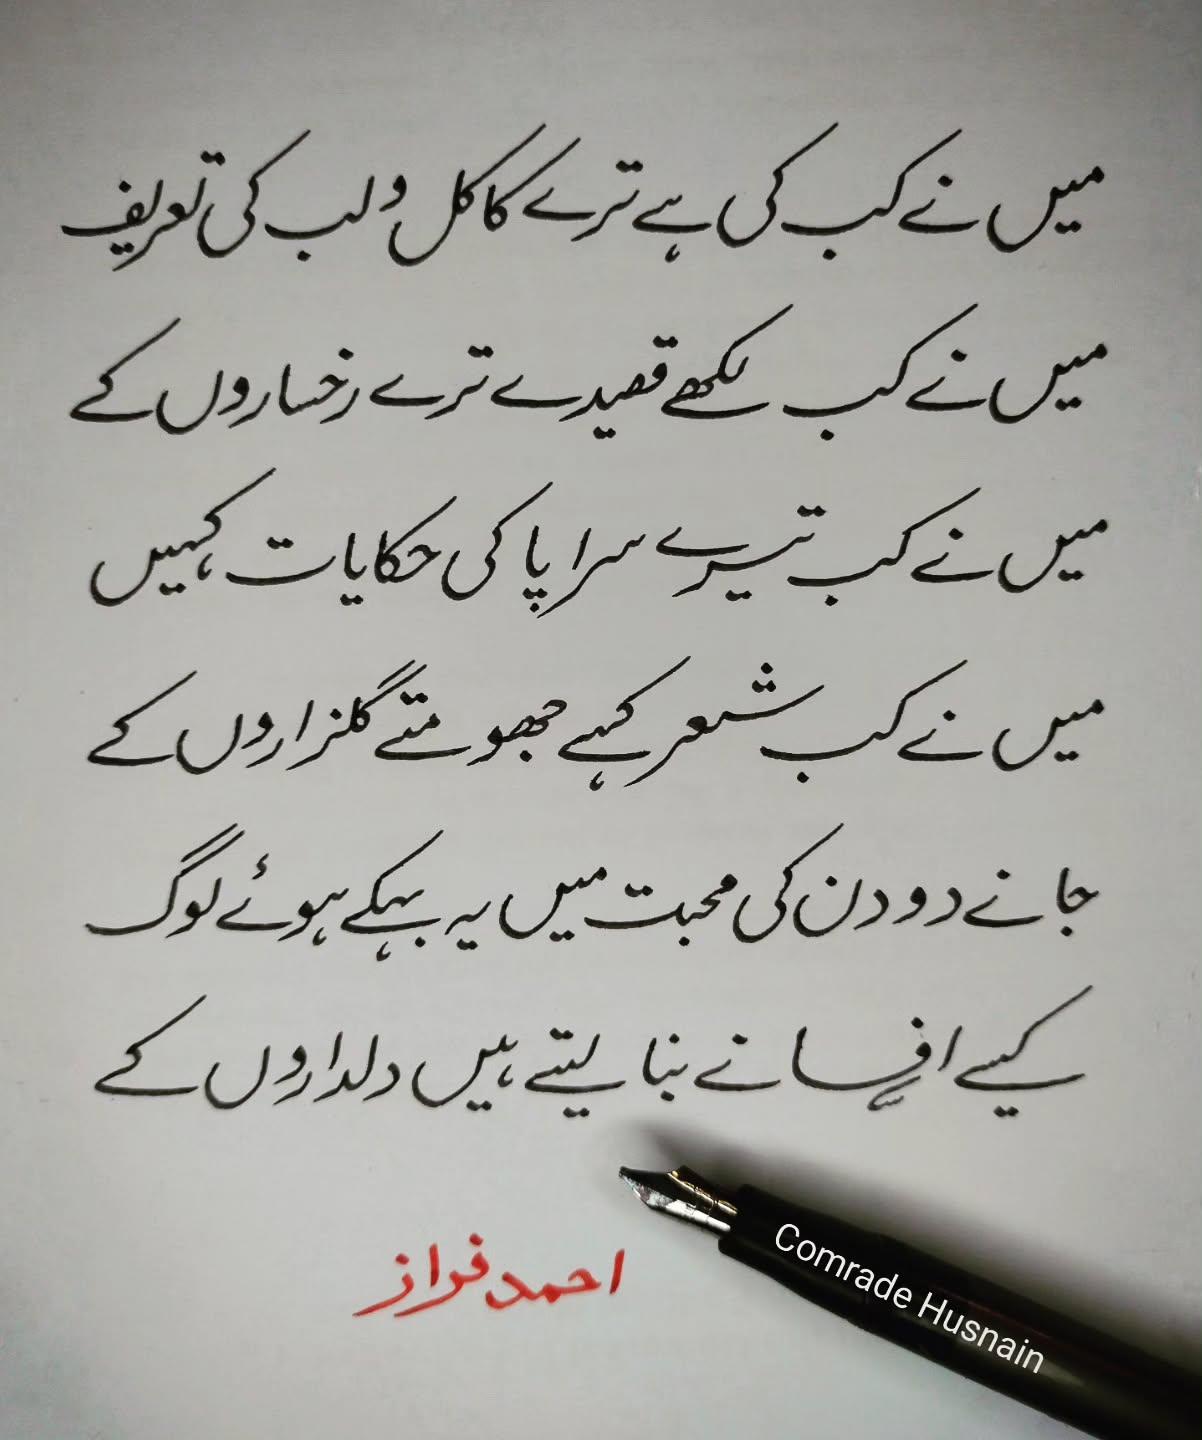 میں نے کب کی ہے ترے کاکل و لب کی تعریف
میں نے کب لکھے قصیدے ترے رخساروں کے
میں نے کب تیرے سراپا کی حکایات کہیں
میں نے کب شعر کہے جھومتے گلزاروں کے
جانے دو دن کی محبت میں یہ بہکے ہوئے لوگ
کیسے افسانے بنا لیتے ہیں دلداروں کے
احمد فراز
Comrade Husnain